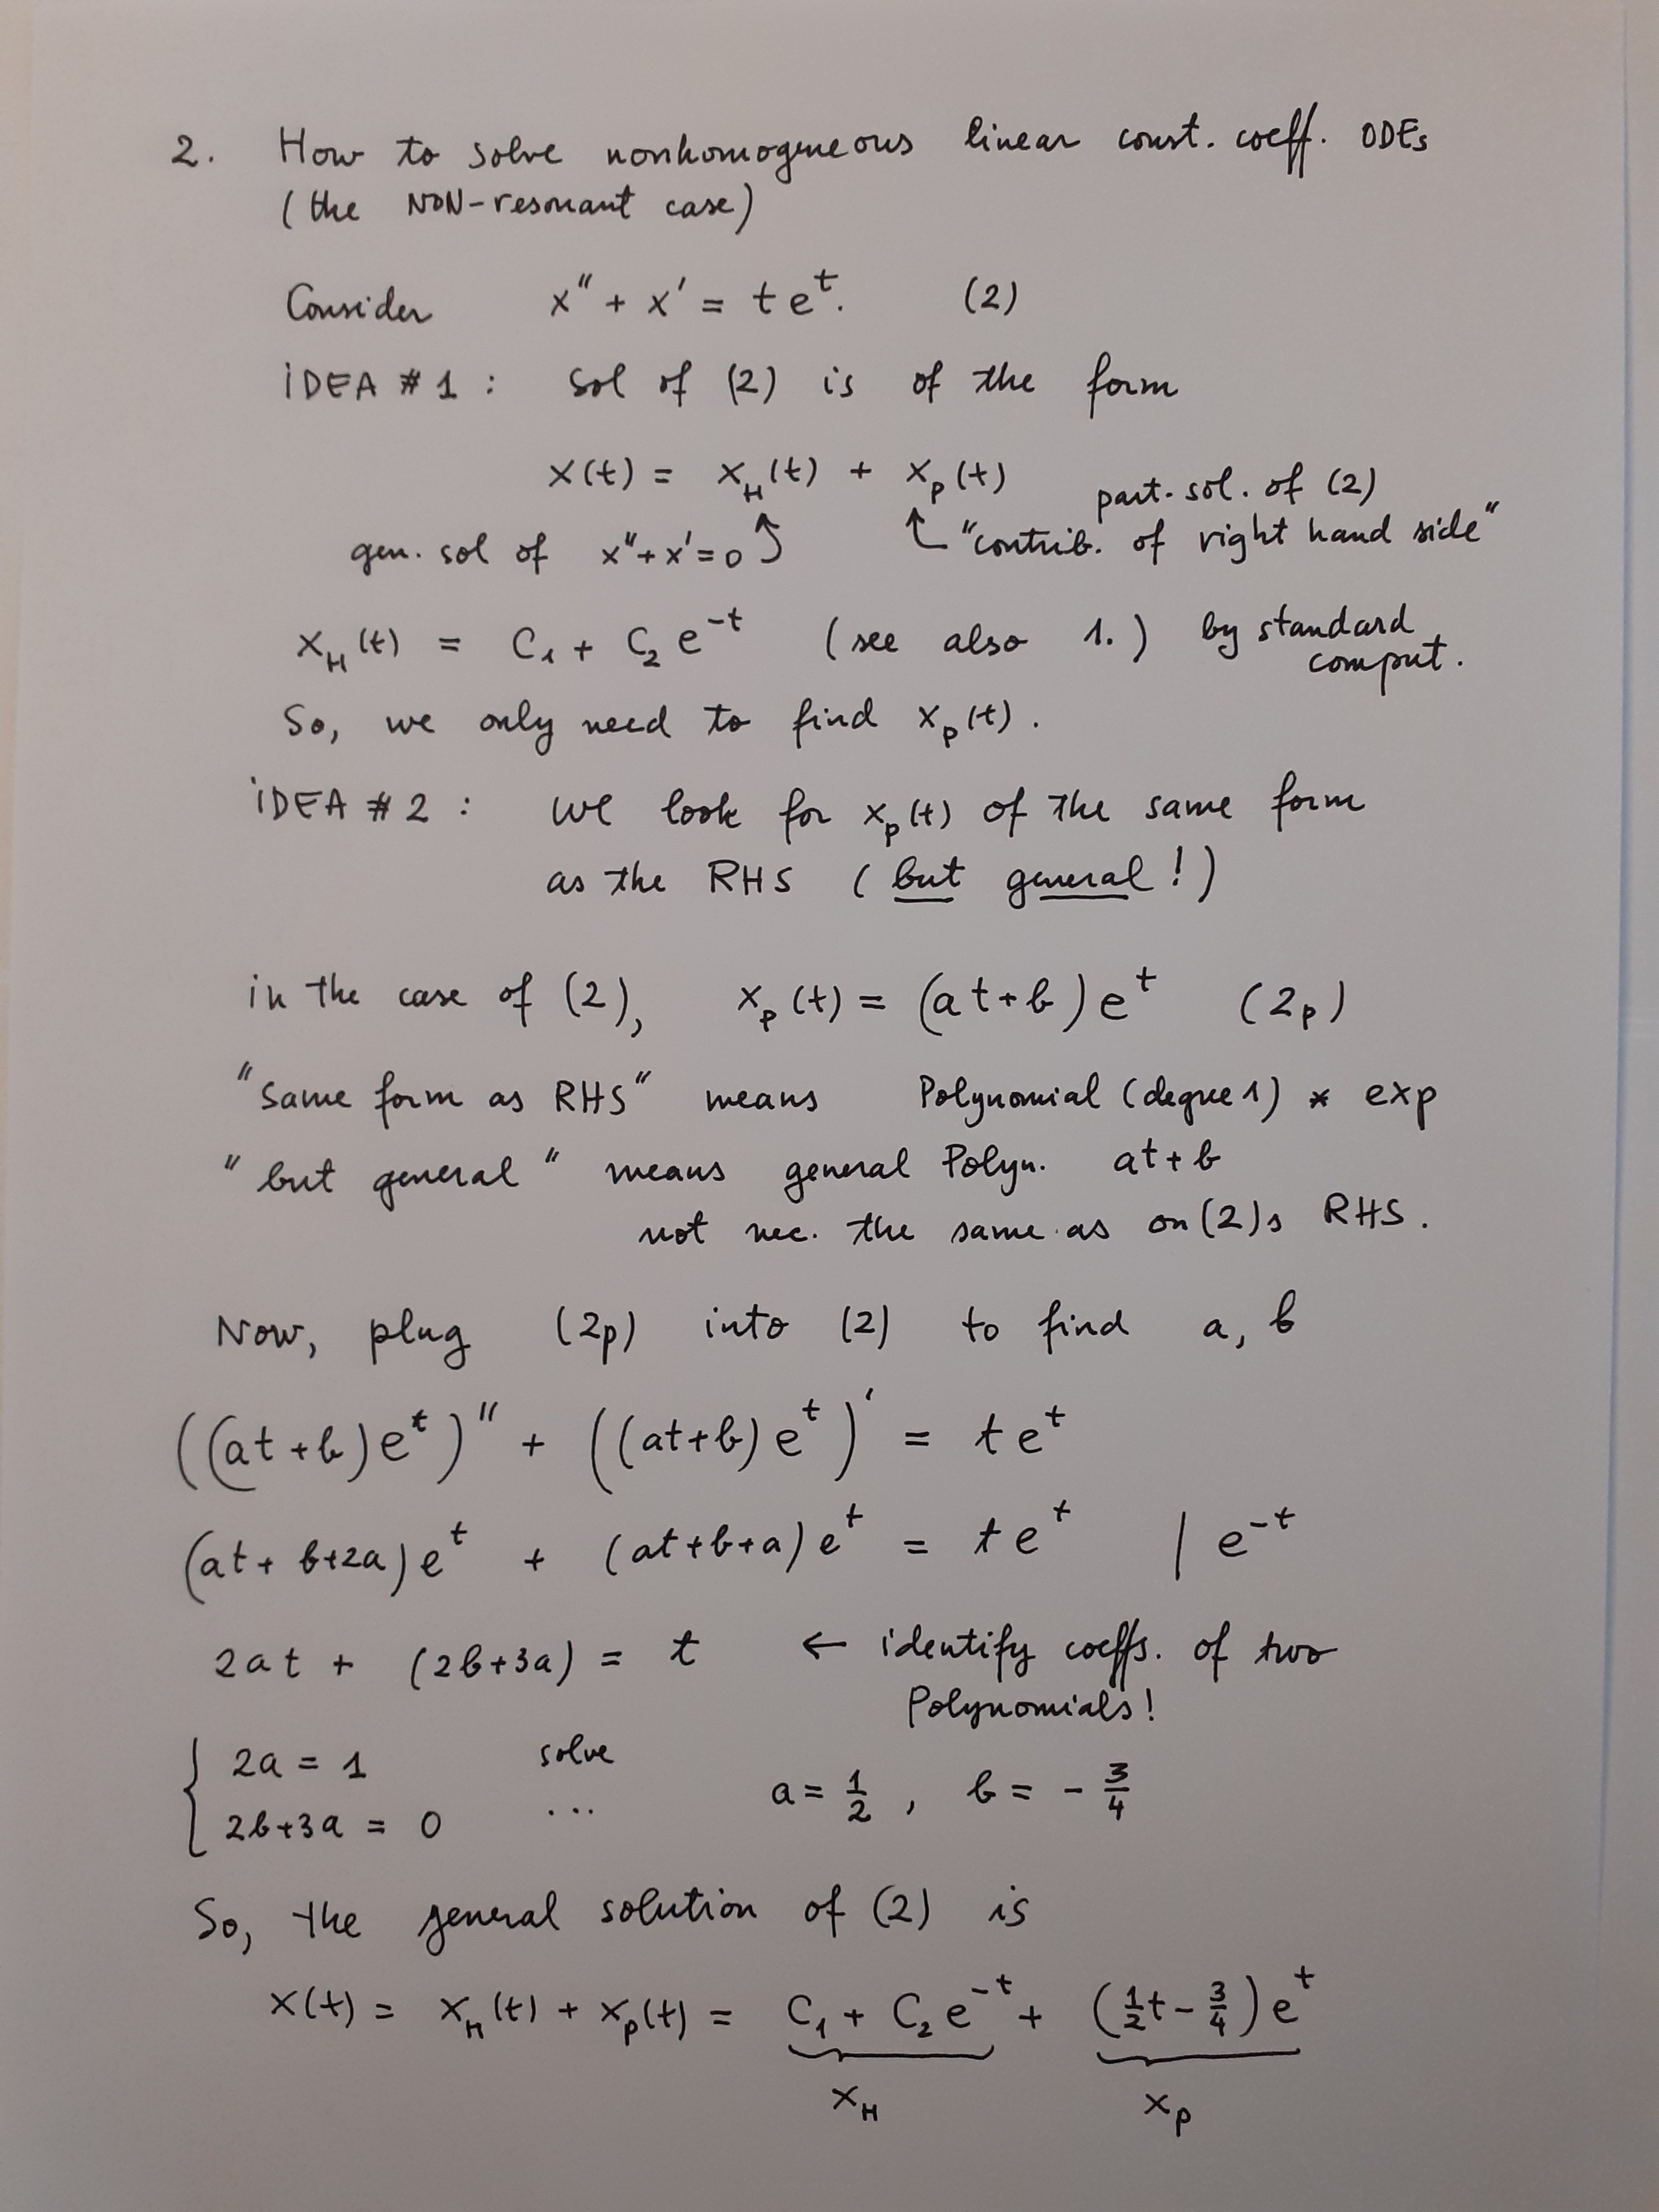 2. How to solve nonhomogeneous linear const. coeff. ODEs
(the NON-resonant case)
Consider x" + x' = t e^t. (2)
iDEA #1 : Sol of (2) is of the form
x(t) = x_H(t) + x_p(t)
part. sol. of (2)
gen. sol of x"+x'=0 ⤴ ↑ "contrib. of right hand side"
x_H(t) = C_1 + C_2 e^{-t} (see also 1.) by standard
comput.
So, we only need to find x_p(t).
iDEA #2 : We look for x_p(t) of the same form
as the RHS (but general!)
in the case of (2), x_p(t) = (at+b)e^t (2p)
"Same form as RHS" means Polynomial (degree 1) * exp
"but general" means general Polyn. at+b
not nec. the same as on (2)s RHS.
Now, plug (2p) into (2) to find a, b
((at+b)e^t)" + ((at+b)e^t)' = t e^t
(at+b+2a)e^t + (at+b+a)e^t = t e^t | e^{-t}
2at + (2b+3a) = t ← identify coeffs. of two
Polynomials!
{ 2a = 1 solve
2b+3a = 0 ... a = 1/2, b = -3/4
So, the general solution of (2) is
x(t) = x_H(t) + x_p(t) = C_1 + C_2 e^{-t} + (1/2 t - 3/4)e^t
x_H x_p